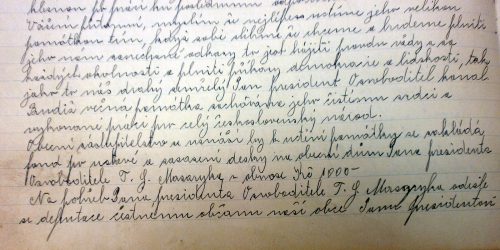 klonon při práci ku poslednímu
Vážím přítomní, myslím že nejlépe uctíme jeho velikou
památkou tím, když sobě slíbíme že chceme a budeme plniti
jeho nám zanechané odkazy to jest hájiti pravdu vždy a za
každých okolností a plniti příkazy demokracie a lidskosti, tak
jak to náš drahý zemřelý Pan president Osvoboditel konal
Budiž věčná památka zachována jeho čistému srdci a
vykonané práci pro celý československý národ.
Obecní zastupitelstvo usnáší by k uctění památky se zakládá
fond pro nuzné a zasazení desky na obecní dům Pana presidenta
Osvoboditele T. G. Masaryka v obnosu Kč 1000-
Na pohřeb Pana presidenta Osvoboditele T. G. Masaryka odešle
se deputace čestnému občanu naší obce Panu Presidentovi